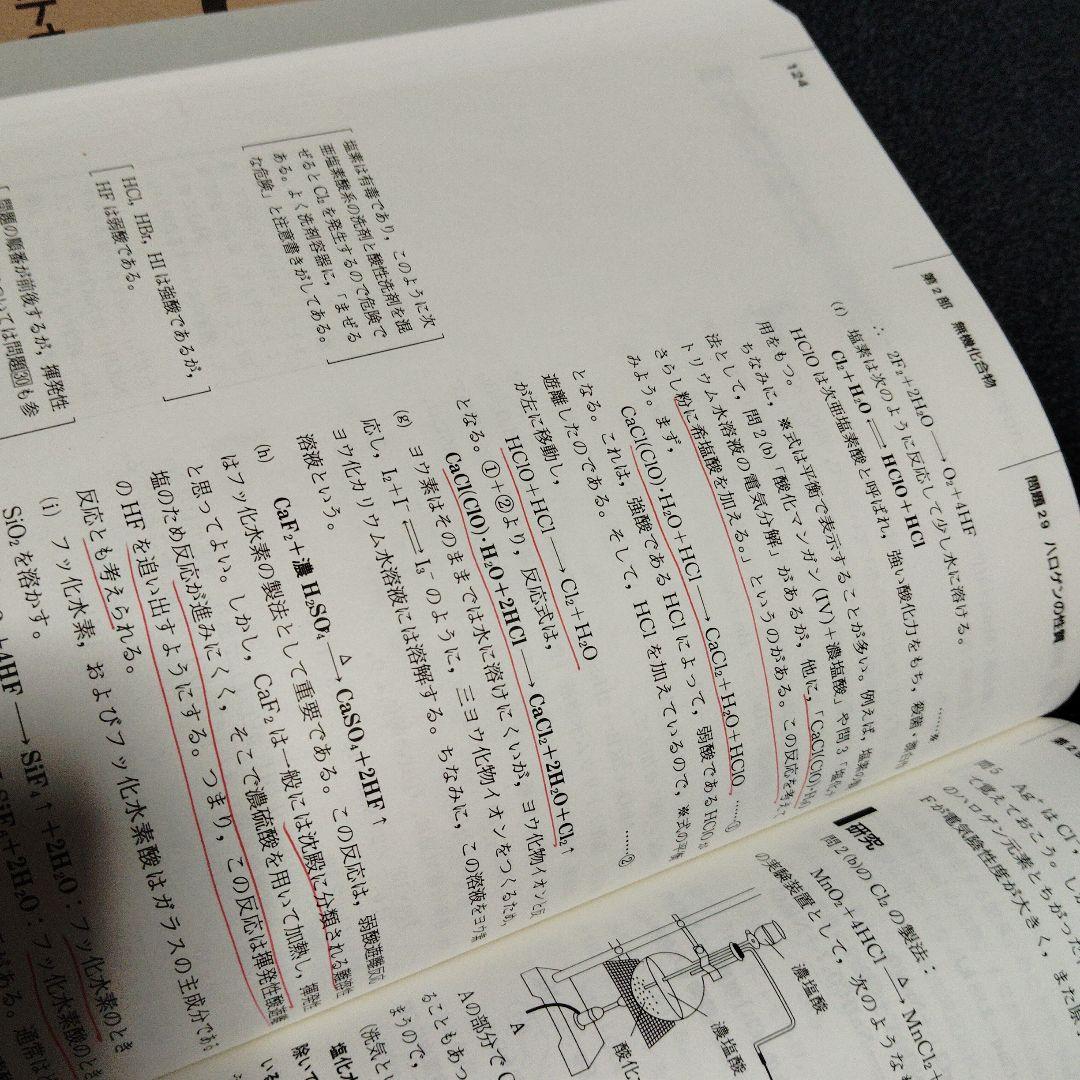 124 第2部 無機化合物 問題29 ハロゲンの性質
∴ 2F₂+2H₂O ⟶ O₂+4HF
(f) 塩素は次のように反応して少し水に溶ける。
Cl₂+H₂O ⇌ HClO+HCl ……※
HClO は次亜塩素酸と呼ばれ，強い酸化力をもち，殺菌・漂白
用をもつ。
ちなみに，※式は平衡で表示することが多い。例えば，塩素の
法として，問2(b)「酸化マンガン(IV)+濃塩酸」や問3「塩化
トリウム水溶液の電気分解」があるが，他に，「CaCl(ClO)・H₂O
さらし粉に希塩酸を加える。」というのがある。この反応を考えて
みよう。まず，
CaCl(ClO)・H₂O+HCl ⟶ CaCl₂+H₂O+HClO ……①
となる。これは，強酸である HCl によって，弱酸である HClO
遊離したのである。そして，HCl を加えているので，※式の平衡
が左に移動し，
HClO+HCl ⟶ Cl₂+H₂O ……②
となる。①+②より，反応式は，
CaCl(ClO)・H₂O+2HCl ⟶ CaCl₂+2H₂O+Cl₂↑
(g) ヨウ素はそのままでは水に溶けにくいが，ヨウ化物イオンと反
応し，I₂+I⁻ ⇌ I₃⁻ のように，三ヨウ化物イオンをつくるため，
ヨウ化カリウム水溶液には溶解する。ちなみに，この溶液をヨウ素
溶液という。
(h) CaF₂+濃 H₂SO₄ △⟶ CaSO₄+2HF↑
はフッ化水素の製法として重要である。この反応は，弱酸遊離反応
と思ってよい。しかし，CaF₂ は一般には沈殿に分類される難溶性
塩のため反応が進みにくく，そこで濃硫酸を用いて加熱し，揮発性
の HF を追い出すようにする。つまり，この反応は揮発性酸遊離
反応とも考えられる。
(i) フッ化水素，およびフッ化水素酸はガラスの主成分である
SiO₂ を溶かす。
+4HF ⟶ SiF₄↑+2H₂O：フッ化水素のとき
SiF₆+2H₂O：フッ化水素酸のとき
がある。通常は
塩素は有毒であり，このように次
亜塩素酸系の洗剤と酸性洗剤を混
ぜると Cl₂ を発生するので危険で
ある。よく洗剤容器に，「まぜる
な危険」と注意書きがしてある。
HCl，HBr，HI は強酸であるが，
HF は弱酸である。
問題の順番が前後するが，揮発性
ついては問題30も参
第2
問5
Ag⁺は Cl
て覚えておこう。し
のハロゲン元素とちがった
Fが電気陰性度が大きく，また原
研究
問2(b)の Cl₂ の製法：
MnO₂+4HCl △⟶ MnCl₂+
の実験装置として，次のような
濃塩酸
濃塩酸
酸化
A
Aの部分で C
ることもあっ
まうので，
(洗気とい
塩化カ
除いて
いる